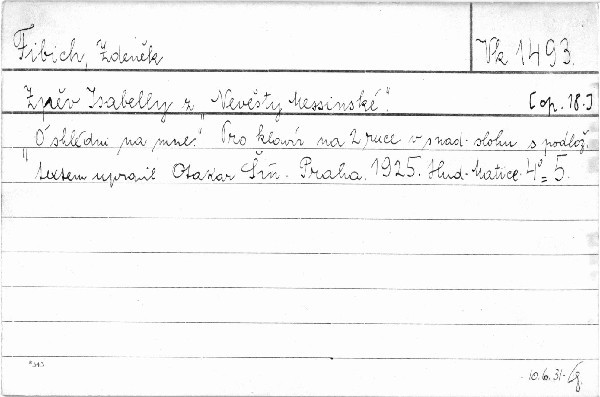 Fibich, Zdeněk
Vk 1493.
Zpěv Isabelly z „Nevěsty Messinské“.
[op. 18.]
„Ó shlédni na mne“. Pro klavír na 2 ruce v snad. slohu s podlož.
textem upravil Otakar Šín. Praha, 1925. Hud. Matice. 4° 5.
*343
10.6.31.